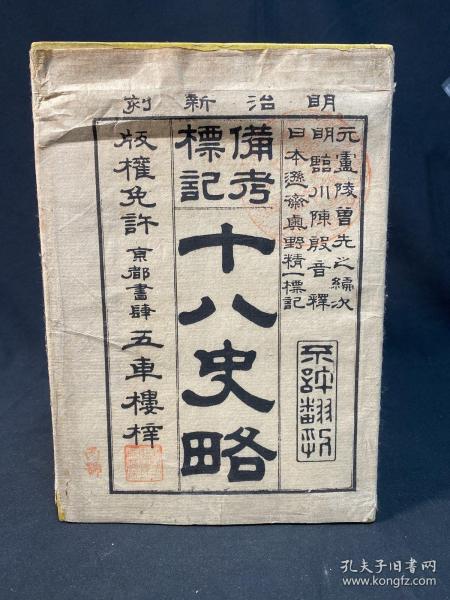 明治新刻
元盧陵曾先之編次
明臨川陳殷音釋
日本遜齋奥野精一標記
不許翻刻
備考
標記
十八史略
版權免許
京都書肆
五車樓梓
孔夫子旧书网
www.kongfz.com